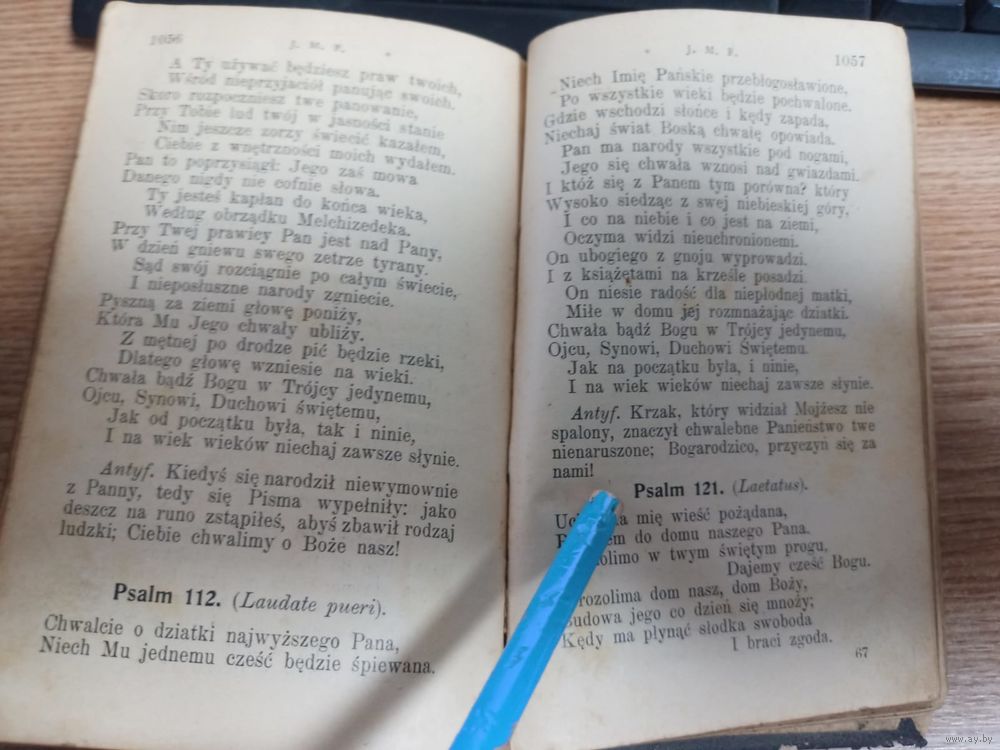 1056
J. M. F.
A Ty używać będziesz praw twoich,
Wśród nieprzyjaciół panując swoich.
Skoro rozpoczniesz twe panowanie,
Przy Tobie lud twój w jasności stanie
Nim jeszcze zorzy świecić kazałem,
Ciebie z wnętrzności moich wydałem.
Pan to poprzysiągł: Jego zaś mowa
Danego nigdy nie cofnie słowa.
Ty jesteś kapłan do końca wieka,
Według obrządku Melchizedeka.
Przy Twej prawicy Pan jest nad Pany,
W dzień gniewu swego zetrze tyrany.
Sąd swój rozciągnie po całym świecie,
I nieposłuszne narody zgniecie.
Pyszną za ziemi głowę poniży,
Która Mu Jego chwały ubliży.
Z mętnej po drodze pić będzie rzeki,
Dlatego głowę wzniesie na wieki.
Chwała bądź Bogu w Trójcy jedynemu,
Ojcu, Synowi, Duchowi świętemu,
Jak od początku była, tak i ninie,
I na wiek wieków niechaj zawsze słynie.
Antyf. Kiedyś się narodził niewymownie
z Panny, tedy się Pisma wypełniły: jako
deszcz na runo zstąpiłeś, abyś zbawił rodzaj
ludzki; Ciebie chwalimy o Boże nasz!
Psalm 112. (Laudate pueri).
Chwalcie o dziatki najwyższego Pana,
Niech Mu jednemu cześć będzie śpiewana.
J. M. F.
1057
Niech Imię Pańskie przebłogosławione,
Po wszystkie wieki będzie pochwalone.
Gdzie wschodzi słońce i kędy zapada,
Niechaj świat Boską chwałę opowiada.
Pan ma narody wszystkie pod nogami,
Jego się chwała wznosi nad gwiazdami.
I któż się z Panem tym porówna? który
Wysoko siedząc z swej niebieskiej góry,
I co na niebie i co jest na ziemi,
Oczyma widzi nieuchronionemi.
On ubogiego z gnoju wyprowadzi.
I z książętami na krześle posadzi.
On niesie radość dla niepłodnej matki,
Miłe w domu jej rozmnażając dziatki.
Chwała bądź Bogu w Trójcy jedynemu,
Ojcu, Synowi, Duchowi Świętemu.
Jak na początku była, i ninie,
I na wiek wieków niechaj zawsze słynie.
Antyf. Krzak, który widział Mojżesz nie
spalony, znaczył chwalebne Panieństwo twe
nienaruszone; Bogarodzico, przyczyń się za
nami!
Psalm 121. (Laetatus).
mię wieść pożądana,
do domu naszego Pana.
w twym świętym progu,
Dajemy cześć Bogu.
dom nasz, dom Boży,
Budowa jego co dzień się mnoży;
Kędy ma płynąć słodka swoboda
I braci zgoda.
67
www.ay.by